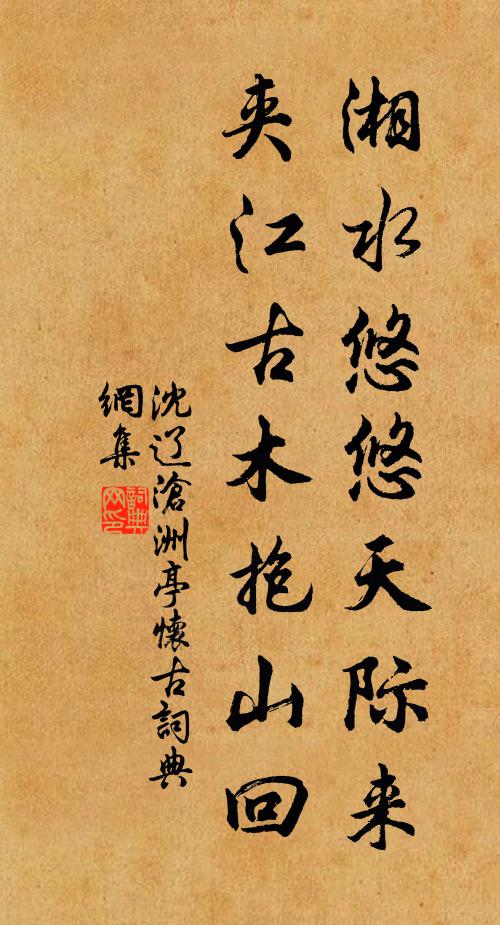 湘水悠悠天际来
夹江古木抱山回
沈辽滄洲亭懷古詞典
網集
詞典网印